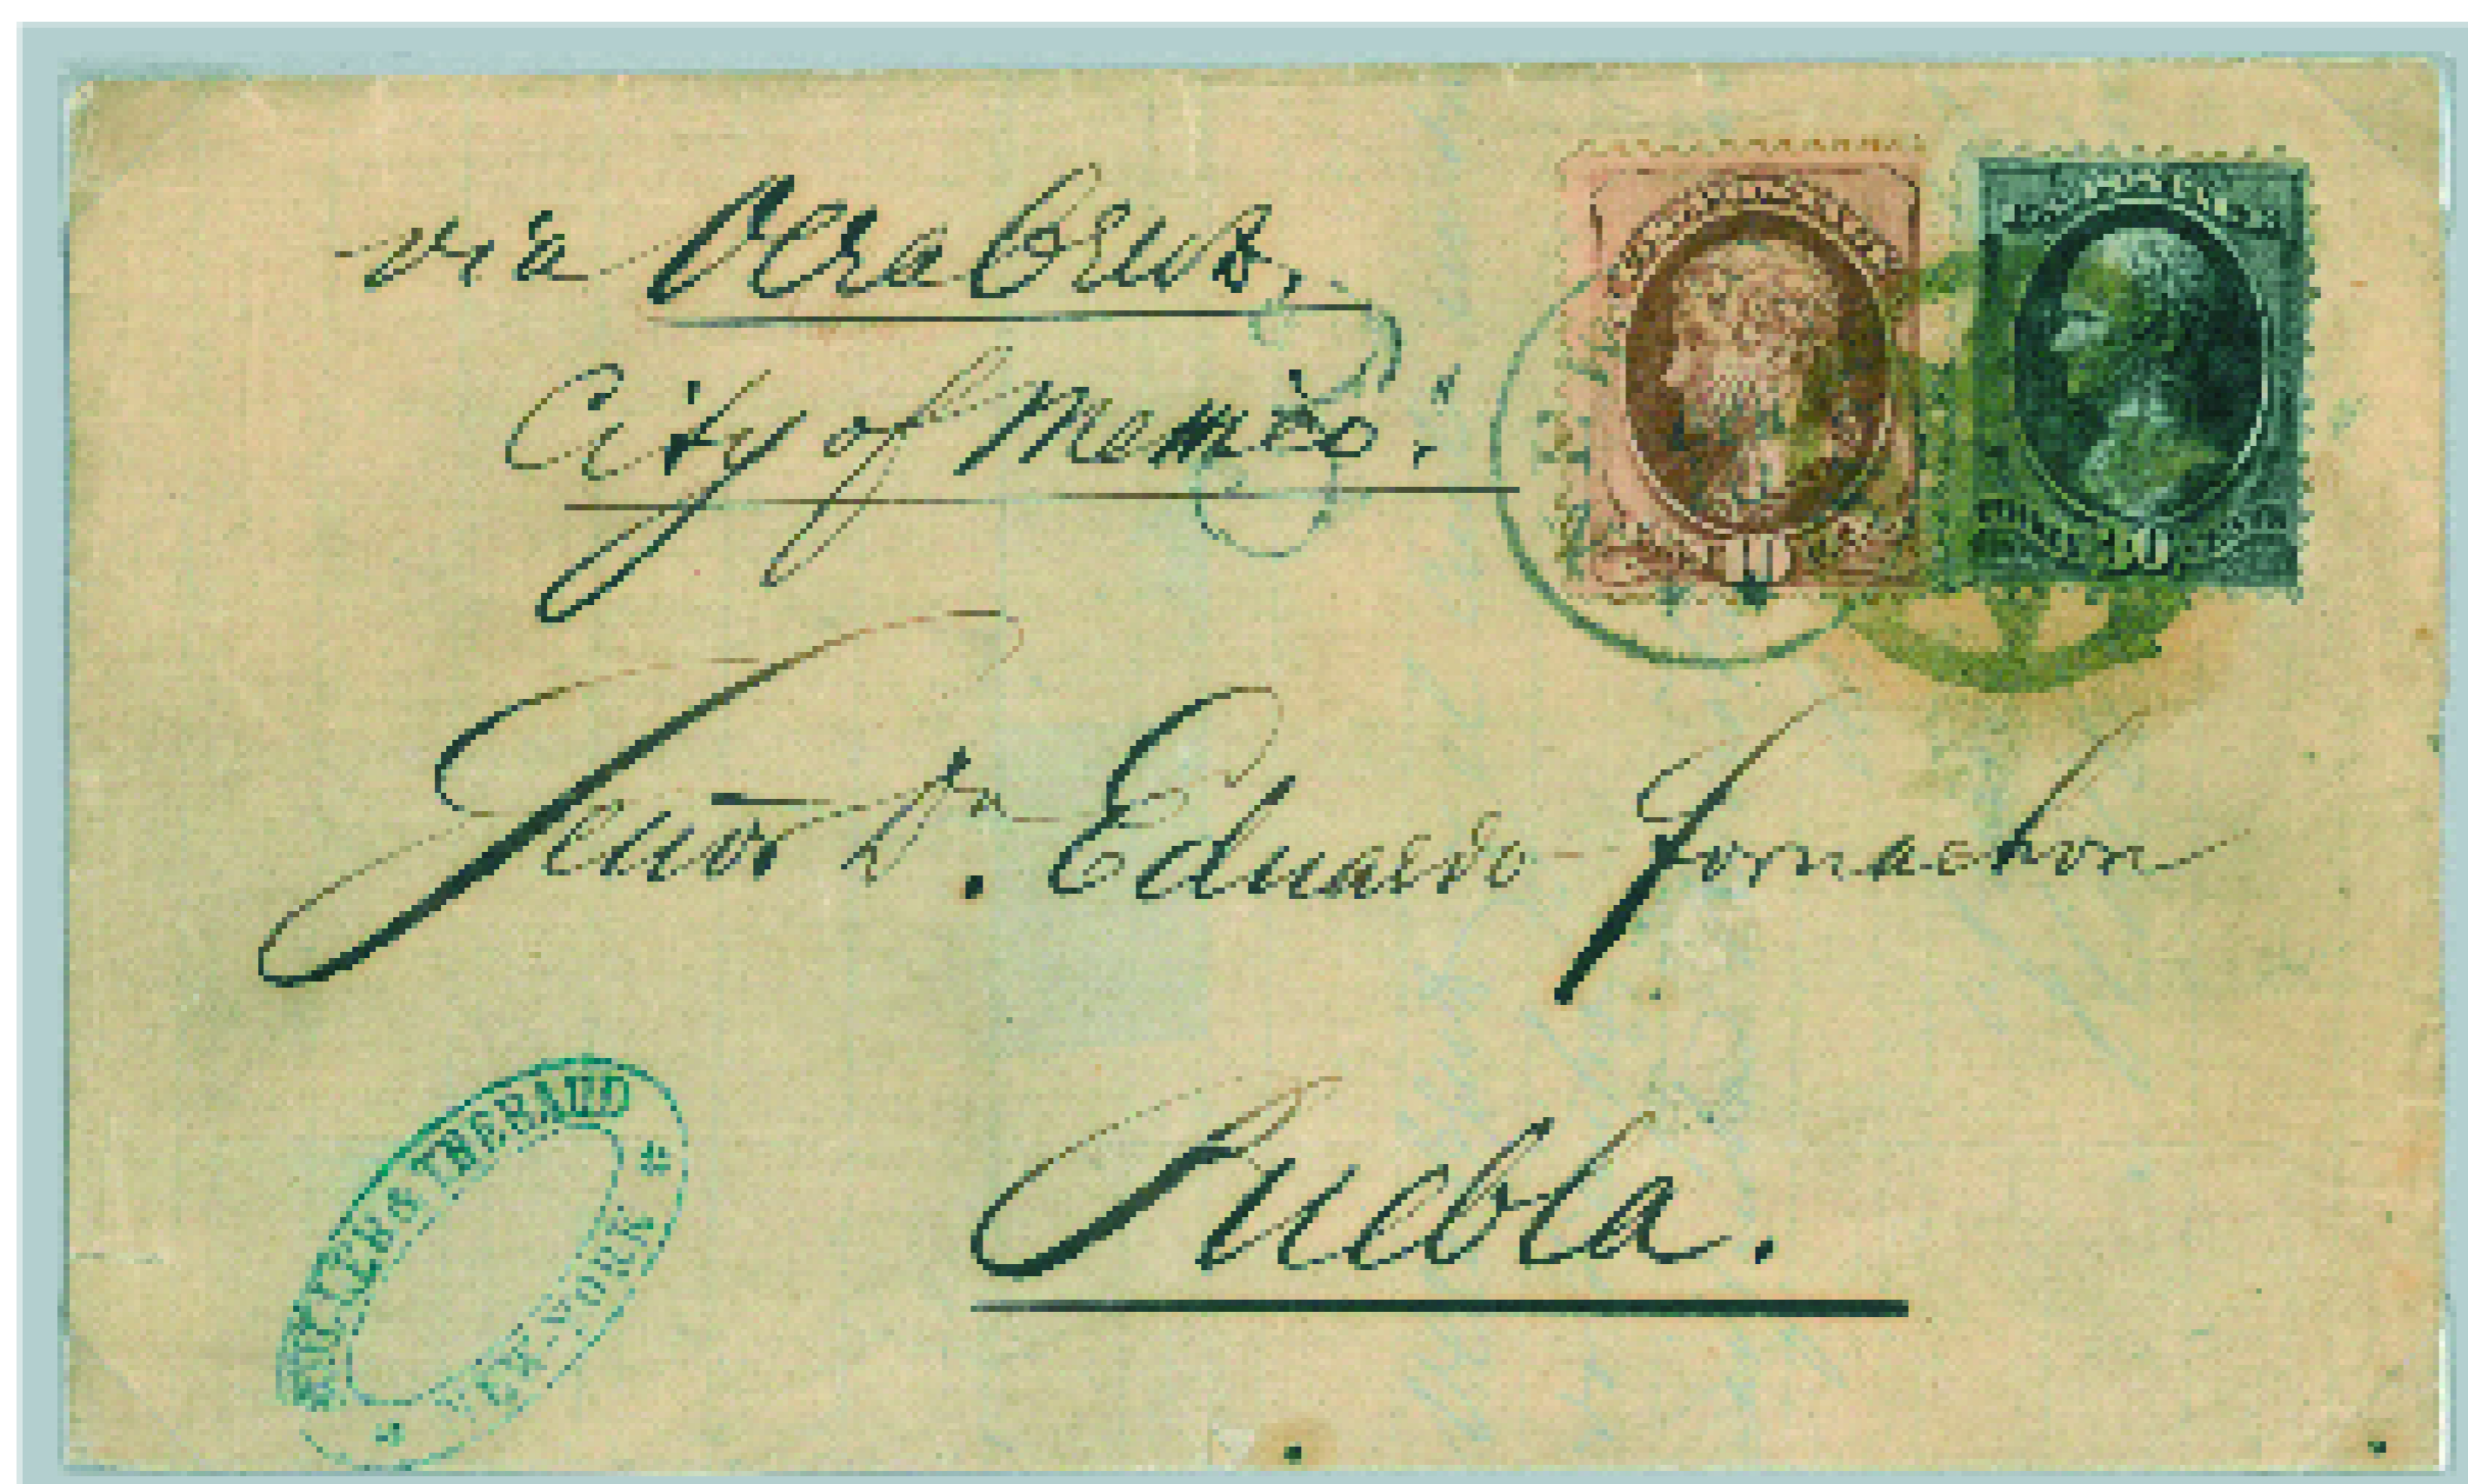 via Vera Cruz.
"City of Mexico."
Señor Dn. Eduardo Fornachon
Puebla.
& THEBAUD
NEW-YORK
10
30